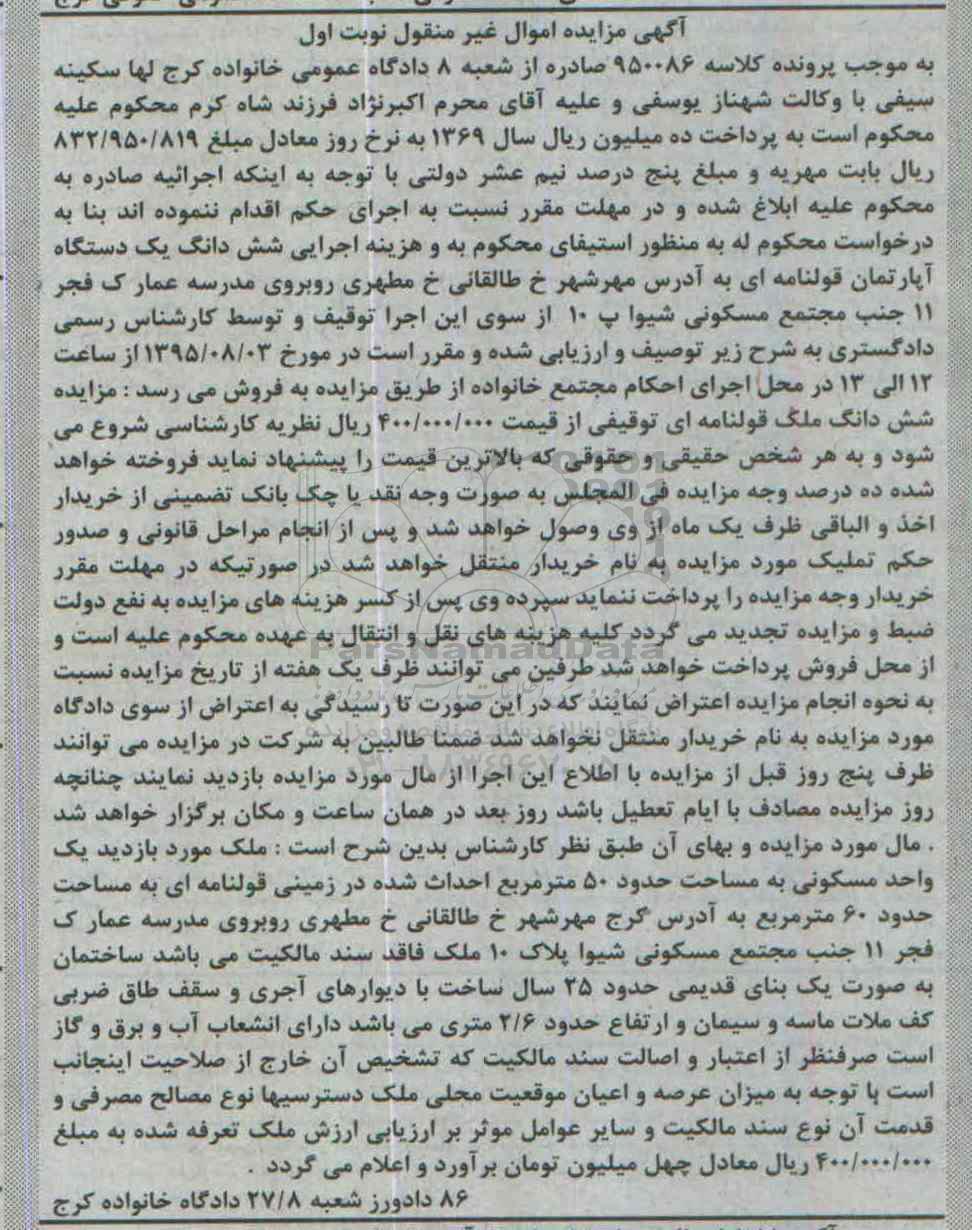 آگهی مزایده اموال غیر منقول نوبت اول
به موجب پرونده کلاسه ۹۵۰۰۸۶ صادره از شعبه ۸ دادگاه عمومی خانواده کرج لها سکینه
سیفی با وکالت شهناز یوسفی و علیه آقای محرم اکبرنژاد فرزند شاه کرم محکوم علیه
محکوم است به پرداخت ده میلیون ریال سال ۱۳۶۹ به نرخ روز معادل مبلغ ۸۳۲/۹۵۰/۸۱۹
ریال بابت مهریه و مبلغ پنج درصد نیم عشر دولتی با توجه به اینکه اجرائیه صادره به
محکوم علیه ابلاغ شده و در مهلت مقرر نسبت به اجرای حکم اقدام ننموده اند بنا به
درخواست محکوم له به منظور استیفای محکوم به و هزینه اجرایی شش دانگ یک دستگاه
آپارتمان قولنامه ای به آدرس مهرشهر خ طالقانی خ مطهری روبروی مدرسه عمار ک فجر
۱۱ جنب مجتمع مسکونی شیوا پ ۱۰ از سوی این اجرا توقیف و توسط کارشناس رسمی
دادگستری به شرح زیر توصیف و ارزیابی شده و مقرر است در مورخ ۱۳۹۵/۰۸/۰۳ از ساعت
۱۲ الی ۱۳ در محل اجرای احکام مجتمع خانواده از طریق مزایده به فروش می رسد : مزایده
شش دانگ ملک قولنامه ای توقیفی از قیمت ۴۰۰/۰۰۰/۰۰۰ ریال نظریه کارشناسی شروع می
شود و به هر شخص حقیقی و حقوقی که بالاترین قیمت را پیشنهاد نماید فروخته خواهد
شده ده درصد وجه مزایده فی المجلس به صورت وجه نقد یا چک بانک تضمینی از خریدار
اخذ و الباقی ظرف یک ماه از وی وصول خواهد شد و پس از انجام مراحل قانونی و صدور
حکم تملیک مورد مزایده به نام خریدار منتقل خواهد شد در صورتیکه در مهلت مقرر
خریدار وجه مزایده را پرداخت ننماید سپرده وی پس از کسر هزینه های مزایده به نفع دولت
ضبط و مزایده تجدید می گردد کلیه هزینه های نقل و انتقال به عهده محکوم علیه است و
ParsNamadData
از محل فروش پرداخت خواهد شد طرفین می توانند ظرف یک هفته از تاریخ مزایده نسبت
به نحوه انجام مزایده اعتراض نمایند که در این صورت تا رسیدگی به اعتراض از سوی دادگاه
مورد مزایده به نام خریدار منتقل نخواهد شد ضمنا طالبین به شرکت در مزایده می توانند
ظرف پنج روز قبل از مزایده با اطلاع این اجرا از مال مورد مزایده بازدید نمایند چنانچه
روز مزایده مصادف با ایام تعطیل باشد روز بعد در همان ساعت و مکان برگزار خواهد شد
. مال مورد مزایده و بهای آن طبق نظر کارشناس بدین شرح است : ملک مورد بازدید یک
واحد مسکونی به مساحت حدود ۵۰ مترمربع احداث شده در زمینی قولنامه ای به مساحت
حدود ۶۰ مترمربع به آدرس کرج مهرشهر خ طالقانی خ مطهری روبروی مدرسه عمار ک
فجر ۱۱ جنب مجتمع مسکونی شیوا پلاک ۱۰ ملک فاقد سند مالکیت می باشد ساختمان
به صورت یک بنای قدیمی حدود ۲۵ سال ساخت با دیوارهای آجری و سقف طاق ضربی
کف ملات ماسه و سیمان و ارتفاع حدود ۲/۶ متری می باشد دارای انشعاب آب و برق و گاز
است صرفنظر از اعتبار و اصالت سند مالکیت که تشخیص آن خارج از صلاحیت اینجانب
است با توجه به میزان عرصه و اعیان موقعیت محلی ملک دسترسیها نوع مصالح مصرفی و
قدمت آن نوع سند مالکیت و سایر عوامل موثر بر ارزیابی ارزش ملک تعرفه شده به مبلغ
۴۰۰/۰۰۰/۰۰۰ ریال معادل چهل میلیون تومان برآورد و اعلام می گردد .
۸۶ دادورز شعبه ۲۷/۸ دادگاه خانواده کرج